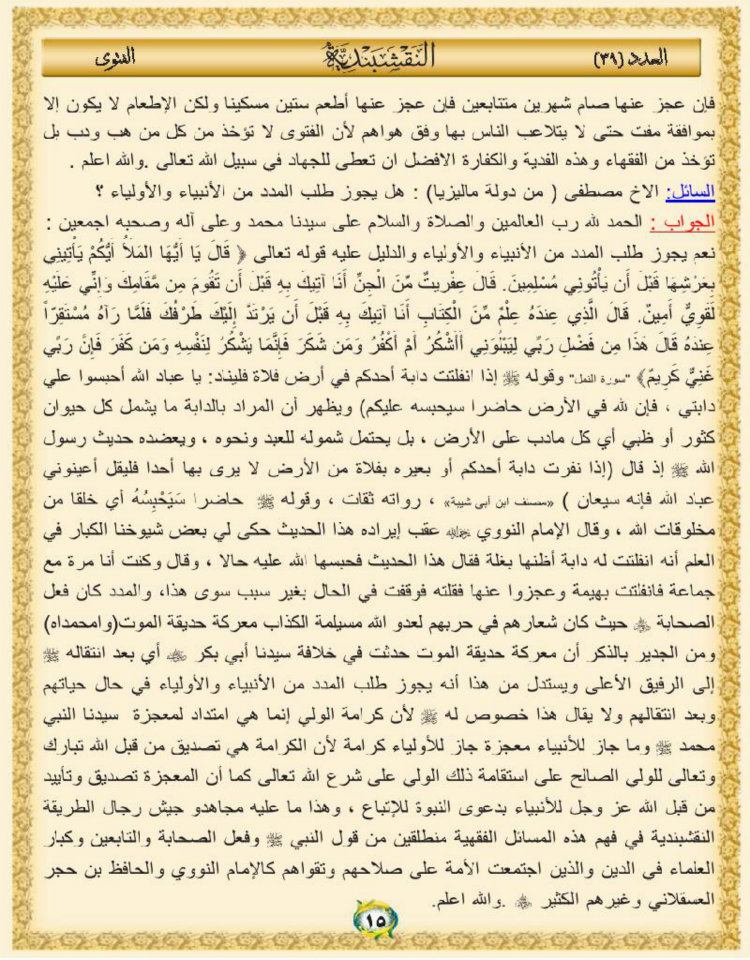 العدد (٣٩) النقشبندية الفتوى
فإن عجز عنها صام شهرين متتابعين فإن عجز عنها أطعم ستين مسكينا ولكن الإطعام لا يكون إلا
بموافقة مفت حتى لا يتلاعب الناس بها وفق هواهم لأن الفتوى لا تؤخذ من كل من هب ودب بل
تؤخذ من الفقهاء وهذه الفدية والكفارة الافضل ان تعطى للجهاد في سبيل الله تعالى .والله اعلم .
السائل: الاخ مصطفى ( من دولة ماليزيا) : هل يجوز طلب المدد من الأنبياء والأولياء ؟
الجواب : الحمد لله رب العالمين والصلاة والسلام على سيدنا محمد وعلى آله وصحبه اجمعين :
نعم يجوز طلب المدد من الأنبياء والأولياء والدليل عليه قوله تعالى ﴿ قَالَ يَا أَيُّهَا المَلَأُ أَيُّكُمْ يَأْتِينِي
بِعَرْشِهَا قَبْلَ أَن يَأْتُونِي مُسْلِمِينَ. قَالَ عِفْريتٌ مِّنَ الْجِنِّ أَنَا آتِيكَ بِهِ قَبْلَ أَن تَقُومَ مِن مَّقَامِكَ وَإِنِّي عَلَيْهِ
لَقَوِيٌّ أَمِينٌ. قَالَ الَّذِي عِندَهُ عِلْمٌ مِّنَ الْكِتَابِ أَنَا آتِيكَ بِهِ قَبْلَ أَن يَرْتَدَّ إِلَيْكَ طَرْفُكَ فَلَمَّا رَآهُ مُسْتَقِرّاً
عِندَهُ قَالَ هَذَا مِن فَضْلِ رَبِّي لِيَبْلُوَنِي أَأَشْكُرُ أَمْ أَكْفُرُ وَمَن شَكَرَ فَإِنَّمَا يَشْكُرُ لِنَفْسِهِ وَمَن كَفَرَ فَإِنَّ رَبِّي
غَنِيٌّ كَرِيمٌ﴾ "سورة النمل" وقوله ﷺ إذا انفلتت دابة أحدكم في أرض فلاة فليناد: يا عباد الله أحبسوا علي
دابتي ، فإن لله في الأرض حاضرا سيحبسه عليكم) ويظهر أن المراد بالدابة ما يشمل كل حيوان
كثور أو ظبي أي كل مادب على الأرض ، بل يحتمل شموله للعبد ونحوه ، ويعضده حديث رسول
الله ﷺ إذ قال (إذا نفرت دابة أحدكم أو بعيره بفلاة من الأرض لا يرى بها أحدا فليقل أعينوني
عباد الله فإنه سيعان ) «مصنف ابن ابي شيبة» ، رواته ثقات ، وقوله ﷺ حاضرا سَيَحْبِسُهُ أي خلقا من
مخلوقات الله ، وقال الإمام النووي عقب إيراده هذا الحديث حكى لي بعض شيوخنا الكبار في
العلم أنه انفلتت له دابة أظنها بغلة فقال هذا الحديث فحبسها الله عليه حالا ، وقال وكنت أنا مرة مع
جماعة فانفلتت بهيمة وعجزوا عنها فقلته فوقفت في الحال بغير سبب سوى هذا، والمدد كان فعل
الصحابة حيث كان شعارهم في حربهم لعدو الله مسيلمة الكذاب معركة حديقة الموت(وامحمداه)
ومن الجدير بالذكر أن معركة حديقة الموت حدثت في خلافة سيدنا أبي بكر أي بعد انتقاله ﷺ
إلى الرفيق الأعلى ويستدل من هذا أنه يجوز طلب المدد من الأنبياء والأولياء في حال حياتهم
وبعد انتقالهم ولا يقال هذا خصوص له ﷺ لأن كرامة الولي إنما هي امتداد لمعجزة سيدنا النبي
محمد ﷺ وما جاز للأنبياء معجزة جاز للأولياء كرامة لأن الكرامة هي تصديق من قبل الله تبارك
وتعالى للولي الصالح على استقامة ذلك الولي على شرع الله تعالى كما أن المعجزة تصديق وتأييد
من قبل الله عز وجل للأنبياء بدعوى النبوة للإتباع ، وهذا ما عليه مجاهدو جيش رجال الطريقة
النقشبندية في فهم هذه المسائل الفقهية منطلقين من قول النبي ﷺ وفعل الصحابة والتابعين وكبار
العلماء في الدين والذين اجتمعت الأمة على صلاحهم وتقواهم كالإمام النووي والحافظ بن حجر
العسقلاني وغيرهم الكثير .والله اعلم.
١٥